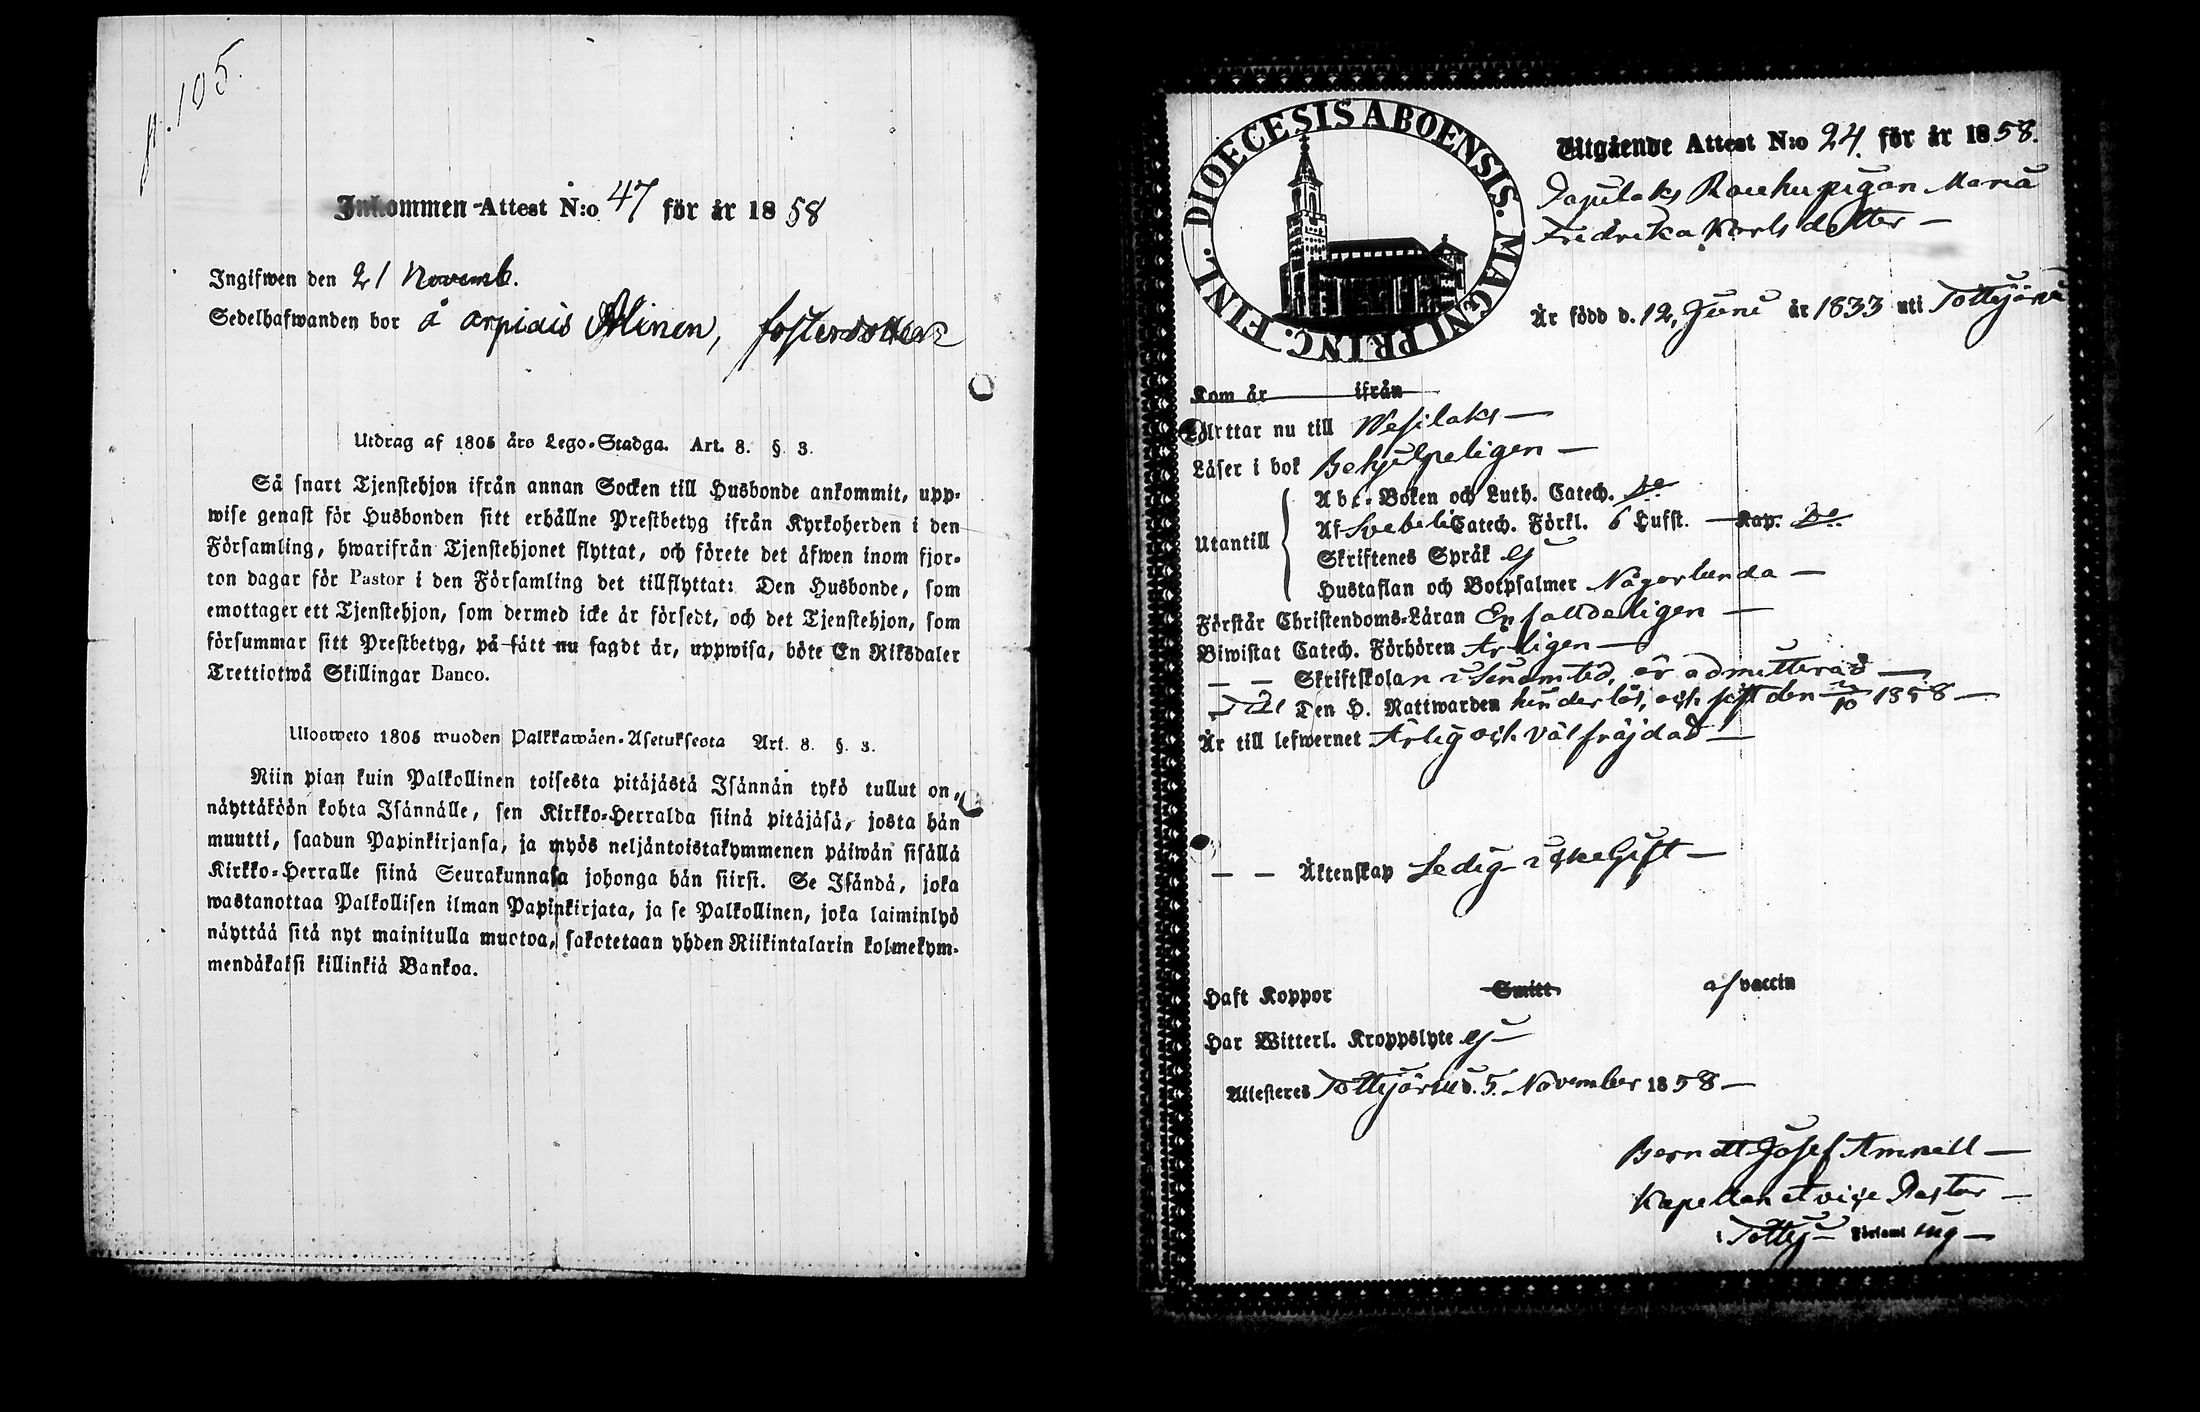 p. 105.
Inkommen-Attest N:o 47 för år 1858
Ingifwen den 21 Novemb.
Sedelhafwanden bor å Arpiais Alinen, fosterdotter
Utdrag af 1805 års Lego-Stadga. Art. 8. § 3.
Så snart Tjenstehjon ifrån annan Socken till Husbonde ankommit, upp-
wise genast för Husbonden sitt erhållne Prestbetyg ifrån Kyrkoherden i den
Församling, hwarifrån Tjenstehjonet flyttat, och förete det äfwen inom fjor-
ton dagar för Pastor i den Församling det tillflyttat: Den Husbonde, som
emottager ett Tjenstehjon, som dermed icke är försedt, och det Tjenstehjon, som
försummar sitt Prestbetyg, på sätt nu sagdt är, uppwisa, böte En Riksdaler
Trettiotwå Skillingar Banco.
Ulosweto 1805 wuoden Palkkawäen-Asetuksesta Art. 8. §. 3.
Niin pian kuin Palkollinen toisesta pitäjästä Isännän tykö tullut on,
näyttäköön kohta Isännälle, sen Kirkko-Herralda siinä pitäjäsä, josta hän
muutti, saadun Papinkirjansa, ja myös neljäntoistakymmenen päiwän sisällä
Kirkko-Herralle siinä Seurakunnasa johonga hän siirsi. Se Isändä, joka
wastanottaa Palkollisen ilman Papinkirjata, ja se Palkollinen, joka laiminlyö
näyttää sitä nyt mainitulla muotoa, sakotetaan yhden Riikintalarin kolmekym-
mendäkaksi killinkiä Bankoa.
DIOECESIS ABOENSIS. MAGNI PRINC. FINL.
Utgående Attest N:o 24. för år 1858.
Maria
Fredrika Karlsdotter —
Är född d. 12, Juni år 1833 uti Tottijärvi
Kom år ifrån
Flyttar nu till Wesilaks —
Läser i bok Behjelpeligen —
Utantill
Abc-Boken och Luth. Catech. do
Af Svebeli Catech. Förkl. 6 Hufst. Kap. do.
Skriftenes Språk ej
Hustaflan och Botpsalmer Någorlunda —
Förstår Christendoms-Läran Enfalldeligen —
Biwistat Catech. Förhören Årligen —
— — Skriftskolan i sinom tid, är admitterad —
— Till Den H. Nattwarden hinderlös, och sist den 3/10 1858 —
Är till lefwernet Ärlig och välfräjdad —
— — Äktenskap Ledig i ske Gift —
Haft Koppor Smitt af vaccin
Har Witterl. Kroppslyte ej —
Attesteres Tottijärvi d. 5. November 1858 —
Berndt Josef Amnell —
Kapellan et vice Pastor —
i Tottij— Församl ing —